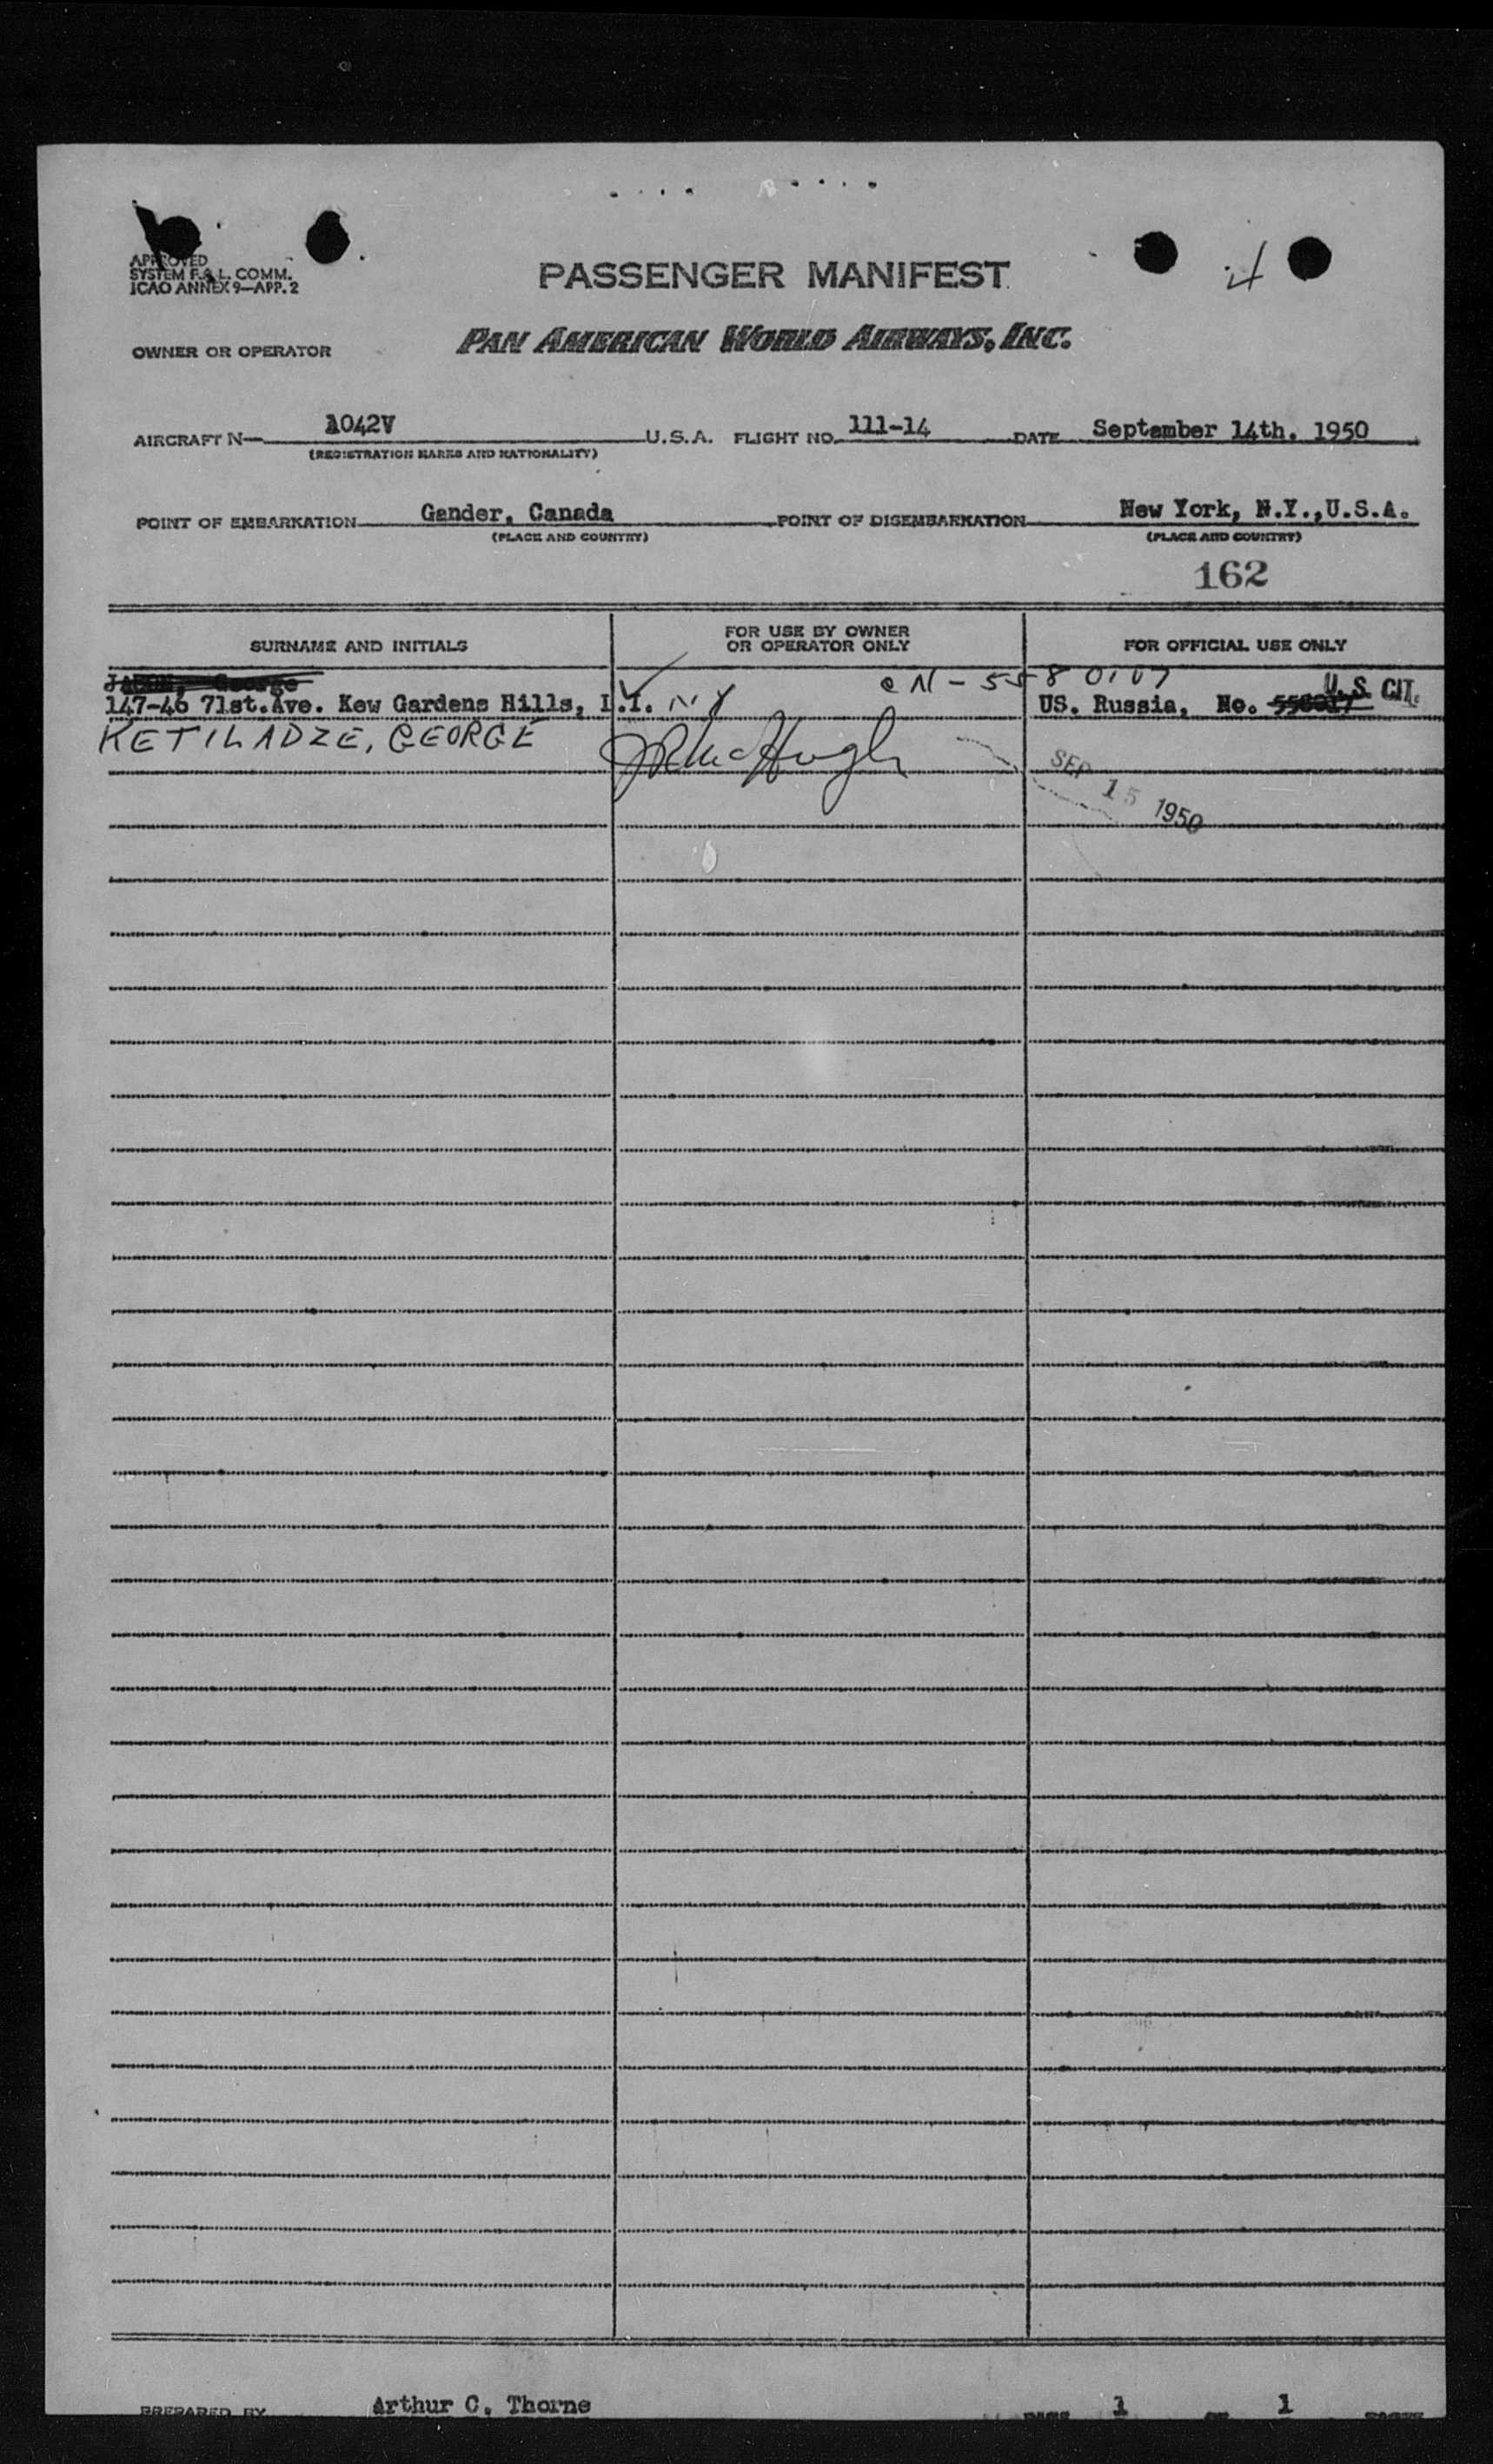 4
APPROVED
SYSTEM F.A.L. COMM.
ICAO ANNEX 9—APP. 2
PASSENGER MANIFEST
OWNER OR OPERATOR PAN AMERICAN WORLD AIRWAYS, INC.
AIRCRAFT N— 1042V U.S.A. FLIGHT NO. 111-14 DATE September 14th. 1950
(REGISTRATION MARKS AND NATIONALITY)
POINT OF EMBARKATION Gander, Canada POINT OF DISEMBARKATION New York, N.Y.,U.S.A.
(PLACE AND COUNTRY) (PLACE AND COUNTRY)
162
SURNAME AND INITIALS FOR USE BY OWNER OR OPERATOR ONLY FOR OFFICIAL USE ONLY
George CN-5580107 U.S. CIT.
147-46 71st.Ave. Kew Gardens Hills, L.I. NY US. Russia, No.
KETILADZE, GEORGE JRMcHugh
SEP 15 1950
PREPARED BY Arthur C. Thorne PAGE 1 OF 1 PAGES